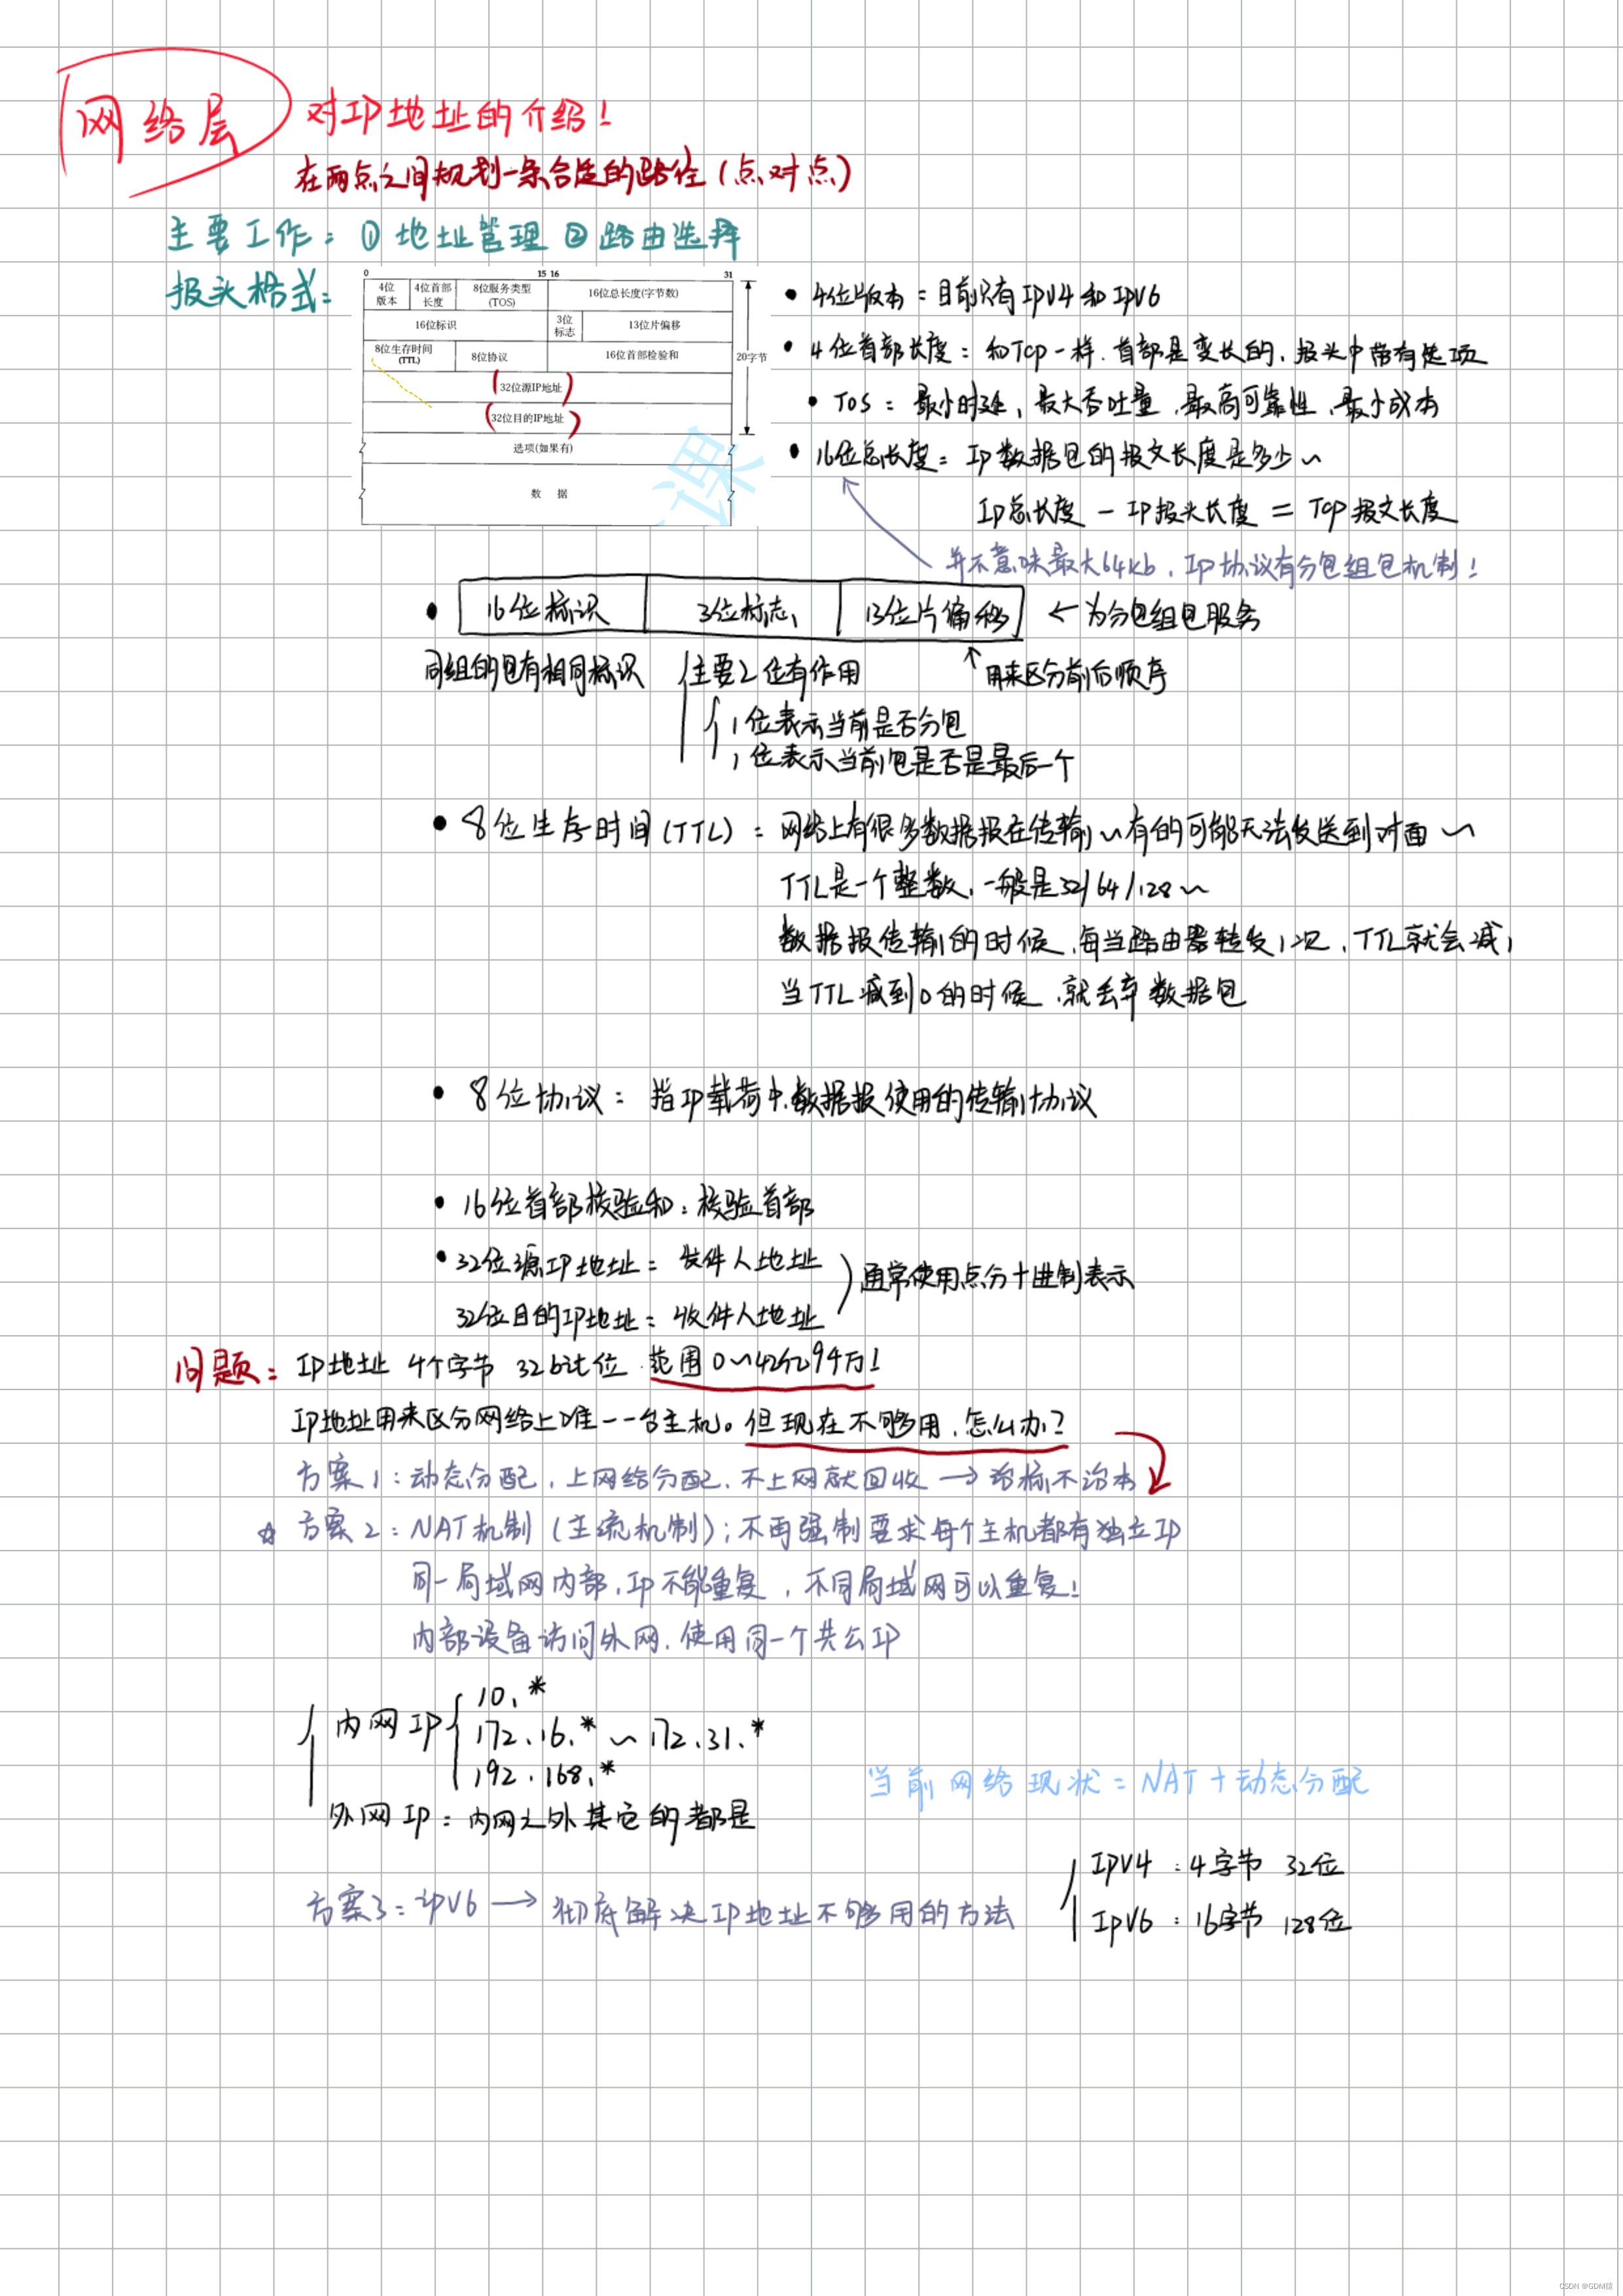 网络层 对IP地址的介绍!
在两点之间规划一条合适的路径(点对点)
主要工作: ① 地址管理 ② 路由选择
报头格式:
0 15 16 31
4位版本 4位首部长度 8位服务类型(TOS) 16位总长度(字节数)
16位标识 3位标志 13位片偏移
8位生存时间(TTL) 8位协议 16位首部检验和
20字节
32位源IP地址
32位目的IP地址
选项(如果有)
数 据
课
• 4位版本: 目前只有IPV4和IPV6
• 4位首部长度: 和TCP一样,首部是变长的,报头中带有选项
• TOS: 最小时延、最大吞吐量、最高可靠性、最小成本
• 16位总长度: IP数据包的报文长度是多少~
IP总长度 - IP报头长度 = TCP报文长度
并不意味最大64kb,IP协议有分包组包机制!
• 16位标识 3位标志 13位片偏移 ← 为分包组包服务
同组的包有相同标识 主要2位有作用 ↑用来区分前后顺序
1位表示当前是否分包
1位表示当前包是否是最后一个
• 8位生存时间(TTL): 网络上有很多数据报在传输~有的可能无法发送到对面~
TTL是一个整数,一般是32/64/128~
数据报传输的时候,每当路由器转发1次,TTL就会减1
当TTL减到0的时候,就丢弃数据包
• 8位协议: 指IP载荷中数据报使用的传输协议
• 16位首部校验和: 校验首部
• 32位源IP地址: 发件人地址
32位目的IP地址: 收件人地址
通常使用点分十进制表示
问题: IP地址 4个字节 32bit位 范围0~42亿94万!
IP地址用来区分网络上唯一一台主机。但现在不够用,怎么办?
方案1: 动态分配,上网给分配,不上网就回收 → 治标不治本
☆ 方案2: NAT机制(主流机制); 不再强制要求每个主机都有独立IP
同一局域网内部,IP不能重复,不同局域网可以重复!
内部设备访问外网,使用同一个共公IP
内网IP
10.*
172.16.* ~ 172.31.*
192.168.*
外网IP: 内网之外其它的都是
当前网络现状: NAT+动态分配
方案3: IPV6 → 彻底解决IP地址不够用的方法
IPV4: 4字节 32位
IPV6: 16字节 128位
CSDN @GDM猿